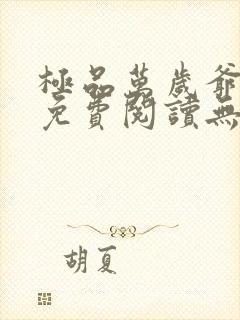 極品萬歲爺
免費閱讀無
胡夏